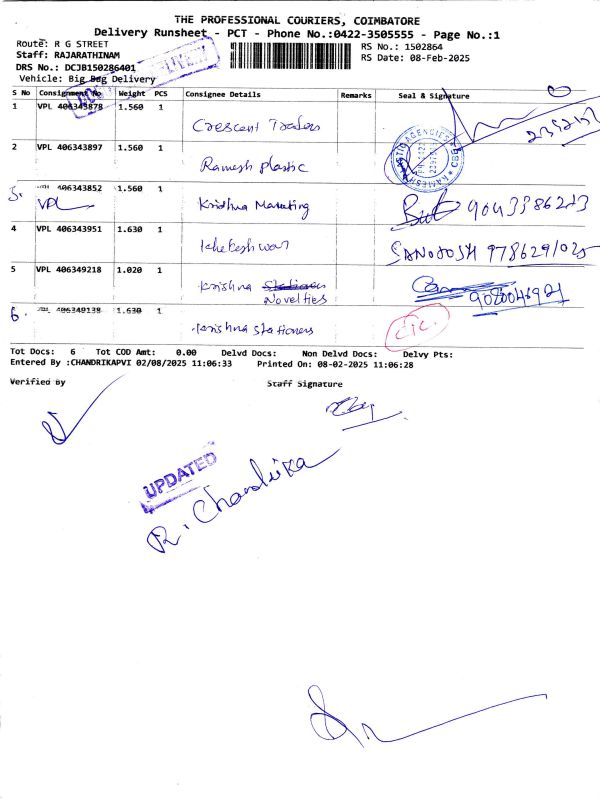 THE PROFESSIONAL COURIERS, COIMBATORE
Delivery Runsheet - PCT - Phone No.:0422-3505555 - Page No.:1
Route: R G STREET
RS No.: 1502864
Staff: RAJARATHINAM
RS Date: 08-Feb-2025
DRS No.: DCJB150286401
Vehicle: Big Bag Delivery
DELIVERY
S No Consignment No Weight PCS Consignee Details Remarks Seal & Signature
1 VPL 406343878 1.560 1 Crescent Traders
2 VPL 406343897 1.560 1 Ramesh plastic
3. 406343852 1.560 1 Krishna Marketing 9043386273
VPL
4 VPL 406343951 1.630 1 SANTOSH
5 VPL 406349218 1.020 1 Krishna
Novelties
6. 406349138 1.630 1 Krishna Stationers
Tot Docs: 6 Tot COD Amt: 0.00 Delvd Docs: Non Delvd Docs: Delvy Pts:
Entered By :CHANDRIKAPVI 02/08/2025 11:06:33 Printed On: 08-02-2025 11:06:28
Verified By Staff Signature
UPDATED
R. Chandrika